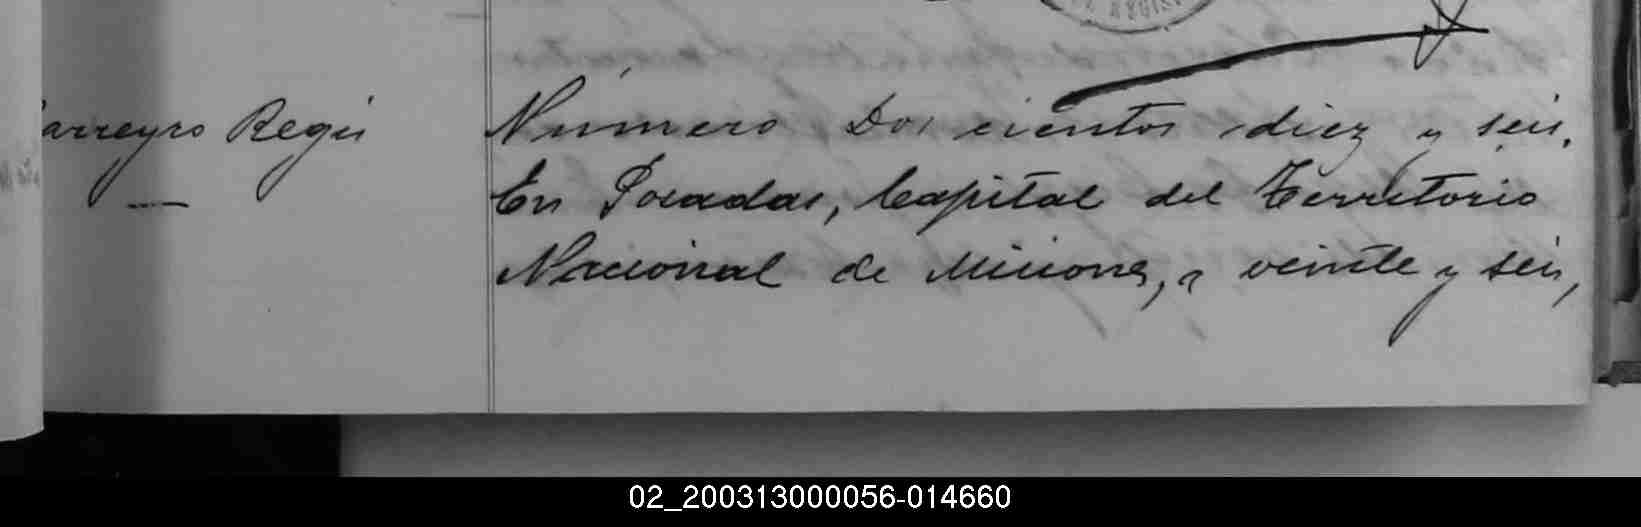 arreyro Regis
Número Dos cientos diez y seis.
En Posadas, Capital del Territorio
Nacional de Misiones, a veinte y seis,
02_200313000056-014660